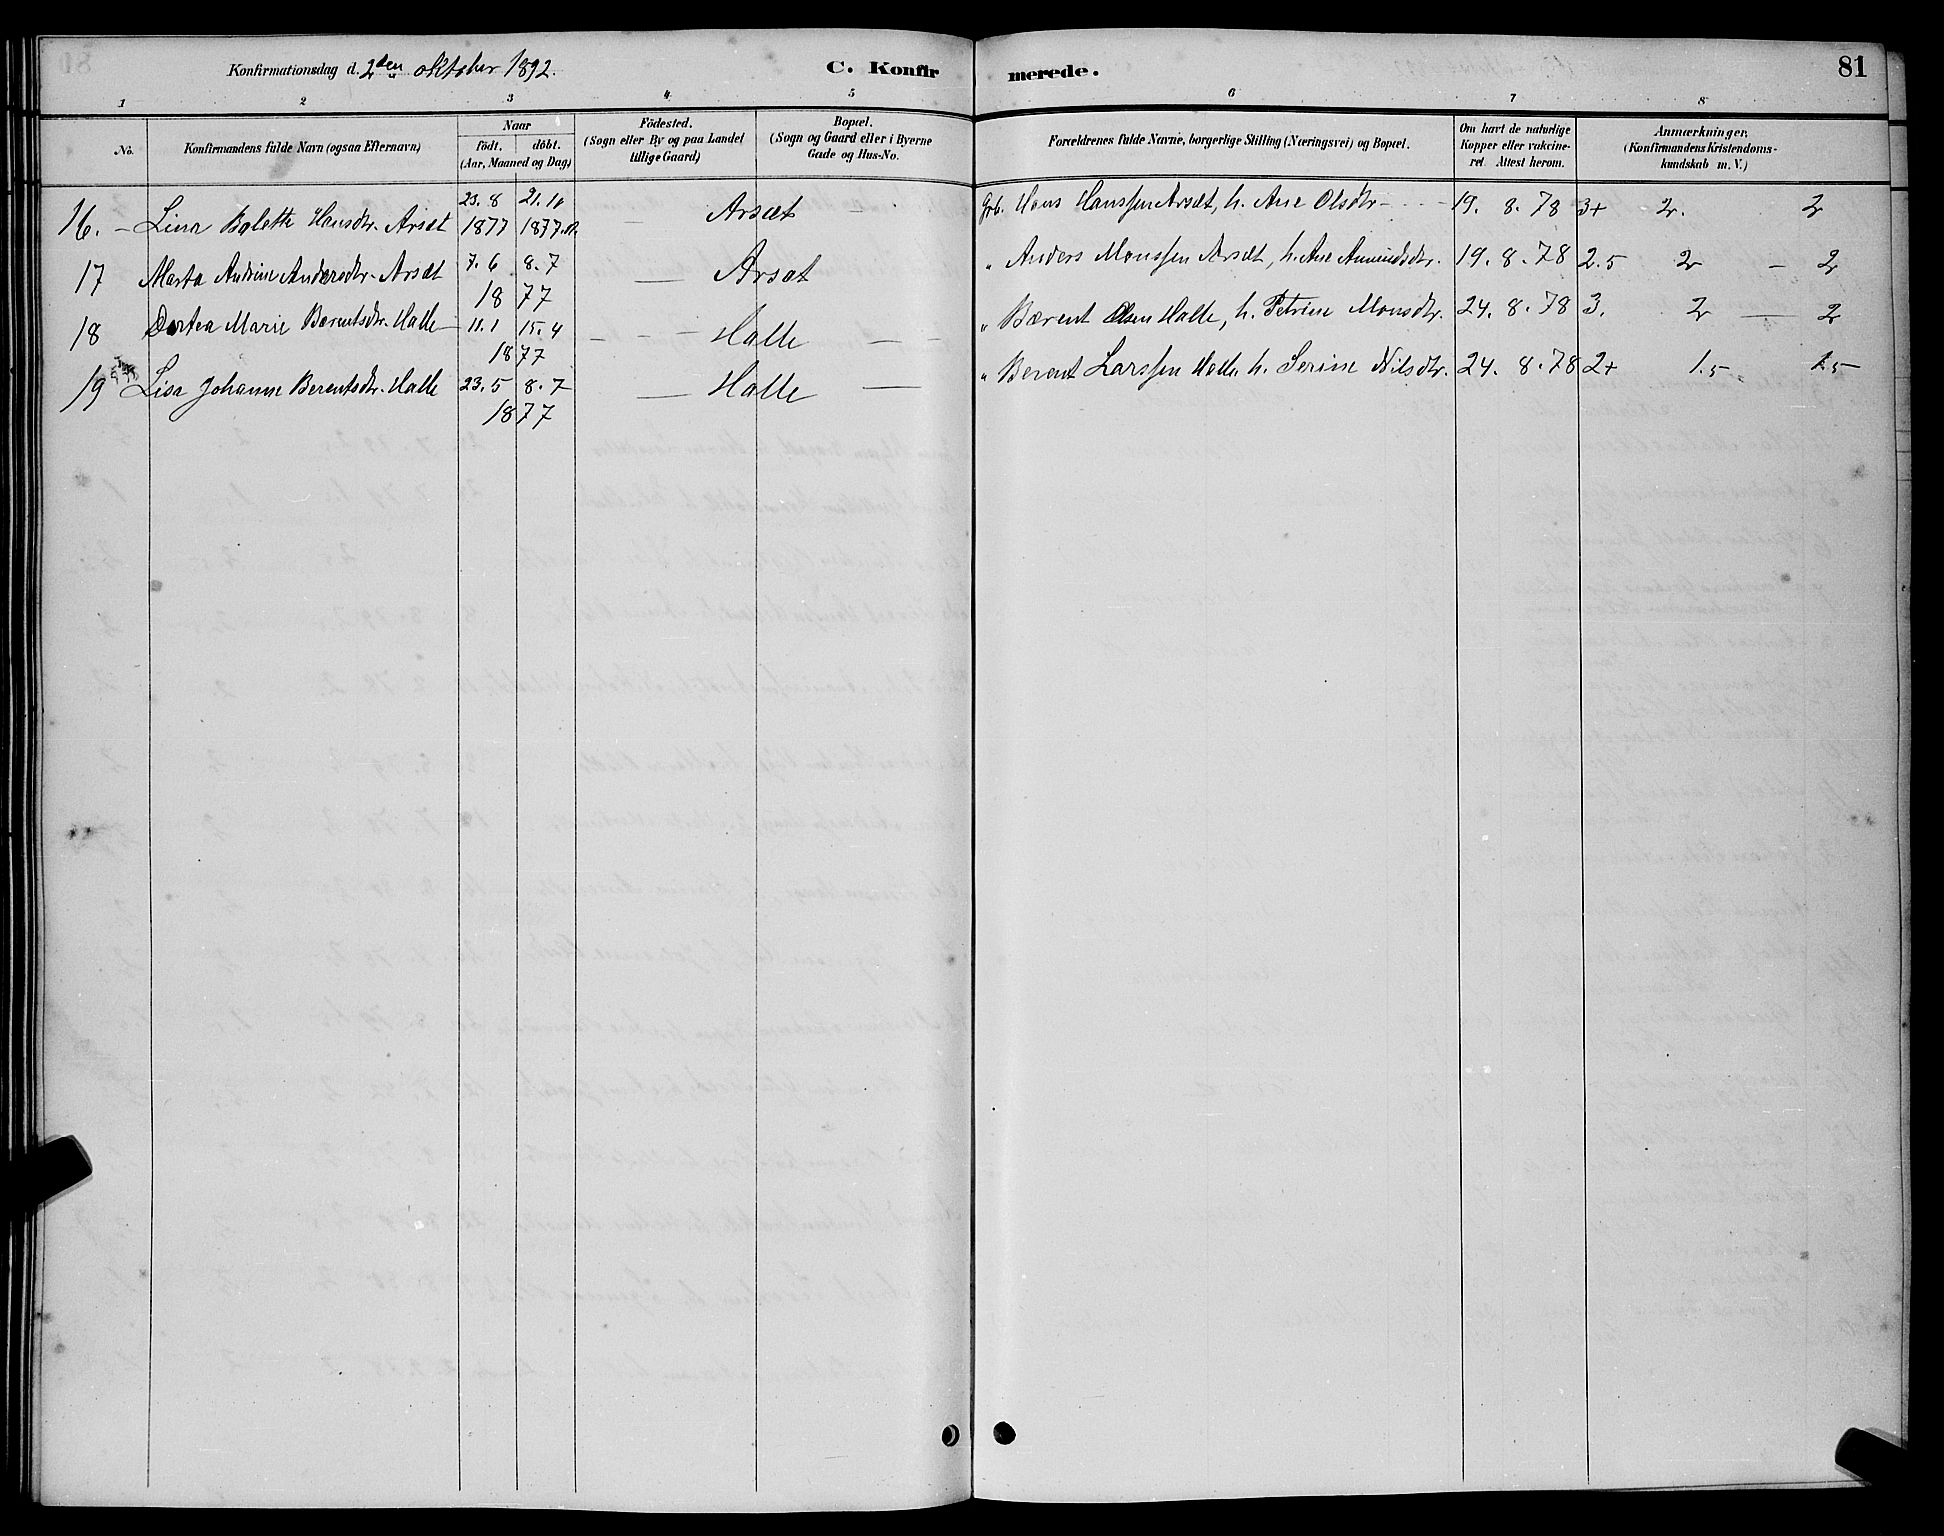 Konfirmationsdag d. 2den oktober 1892.
C. Konfirmerede.
81
1 2 3 4 5 6 7 8
No.
Konfirmandens fulde Navn (ogsaa Efternavn)
Naar
födt. döbt.
(Aar, Maaned og Dag)
Födested.
(Sogn eller By og paa Landet
tillige Gaard)
Bopæl.
(Sogn og Gaard eller i Byerne
Gade og Hus-No.
Forældrenes fulde Navne, borgerlige Stilling (Næringsvei) og Bopæl.
Om havt de naturlige
Kopper eller vakcine-
ret. Attest herom.
Anmærkninger,
(Konfirmandens Kristendoms-
kundskab m. V.)
16. – Lina Balette Hansdtr. Arsæt 23.8 1877 21.10 1877 Arsæt Grb. Hans Hanssen Arsæt, h. Ane Olsdtr 19. 8. 78 3+ 2. 2
17 Marta Andrine Andersdtr. Arsæt 7.6 8.7 1877 — Arsæt " Anders Monssen Arsæt, h. Ane Amundsdtr. 19. 8. 78 2.5 2 – 2
18 Dortea Marie Berentsdtr. Halle 11.1 15.4 1877 – – – Halle — — " Bærent Olsen Halle, h. Petrine Monsdtr. 24. 8. 78 3. 2 — 2
19 Lisa Johanne Berentsdtr. Halle 23.5 8.7 1877 — Halle — " Berent Larssen Halle, h. Serine Nilsdtr. 24. 8. 78 2+ 1.5 1.5